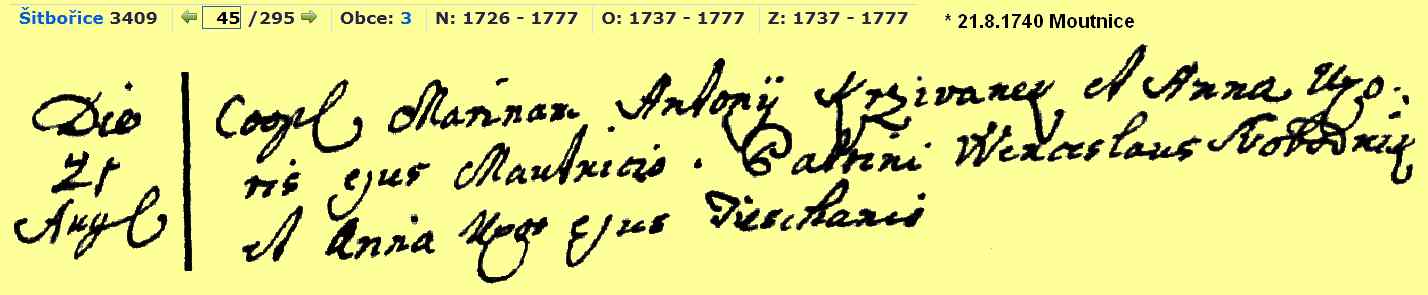 Šitbořice 3409 45 /295 Obce: 3 N: 1726 - 1777 O: 1737 - 1777 Z: 1737 - 1777 * 21.8.1740 Moutnice
Die Coopl Marinam Antonÿ Krzivanek et Anna Uxo.
21 ris ejus Mautnicio. Patrini Wenceslaus
Augl et Anna Uxor ejus Tieschanio